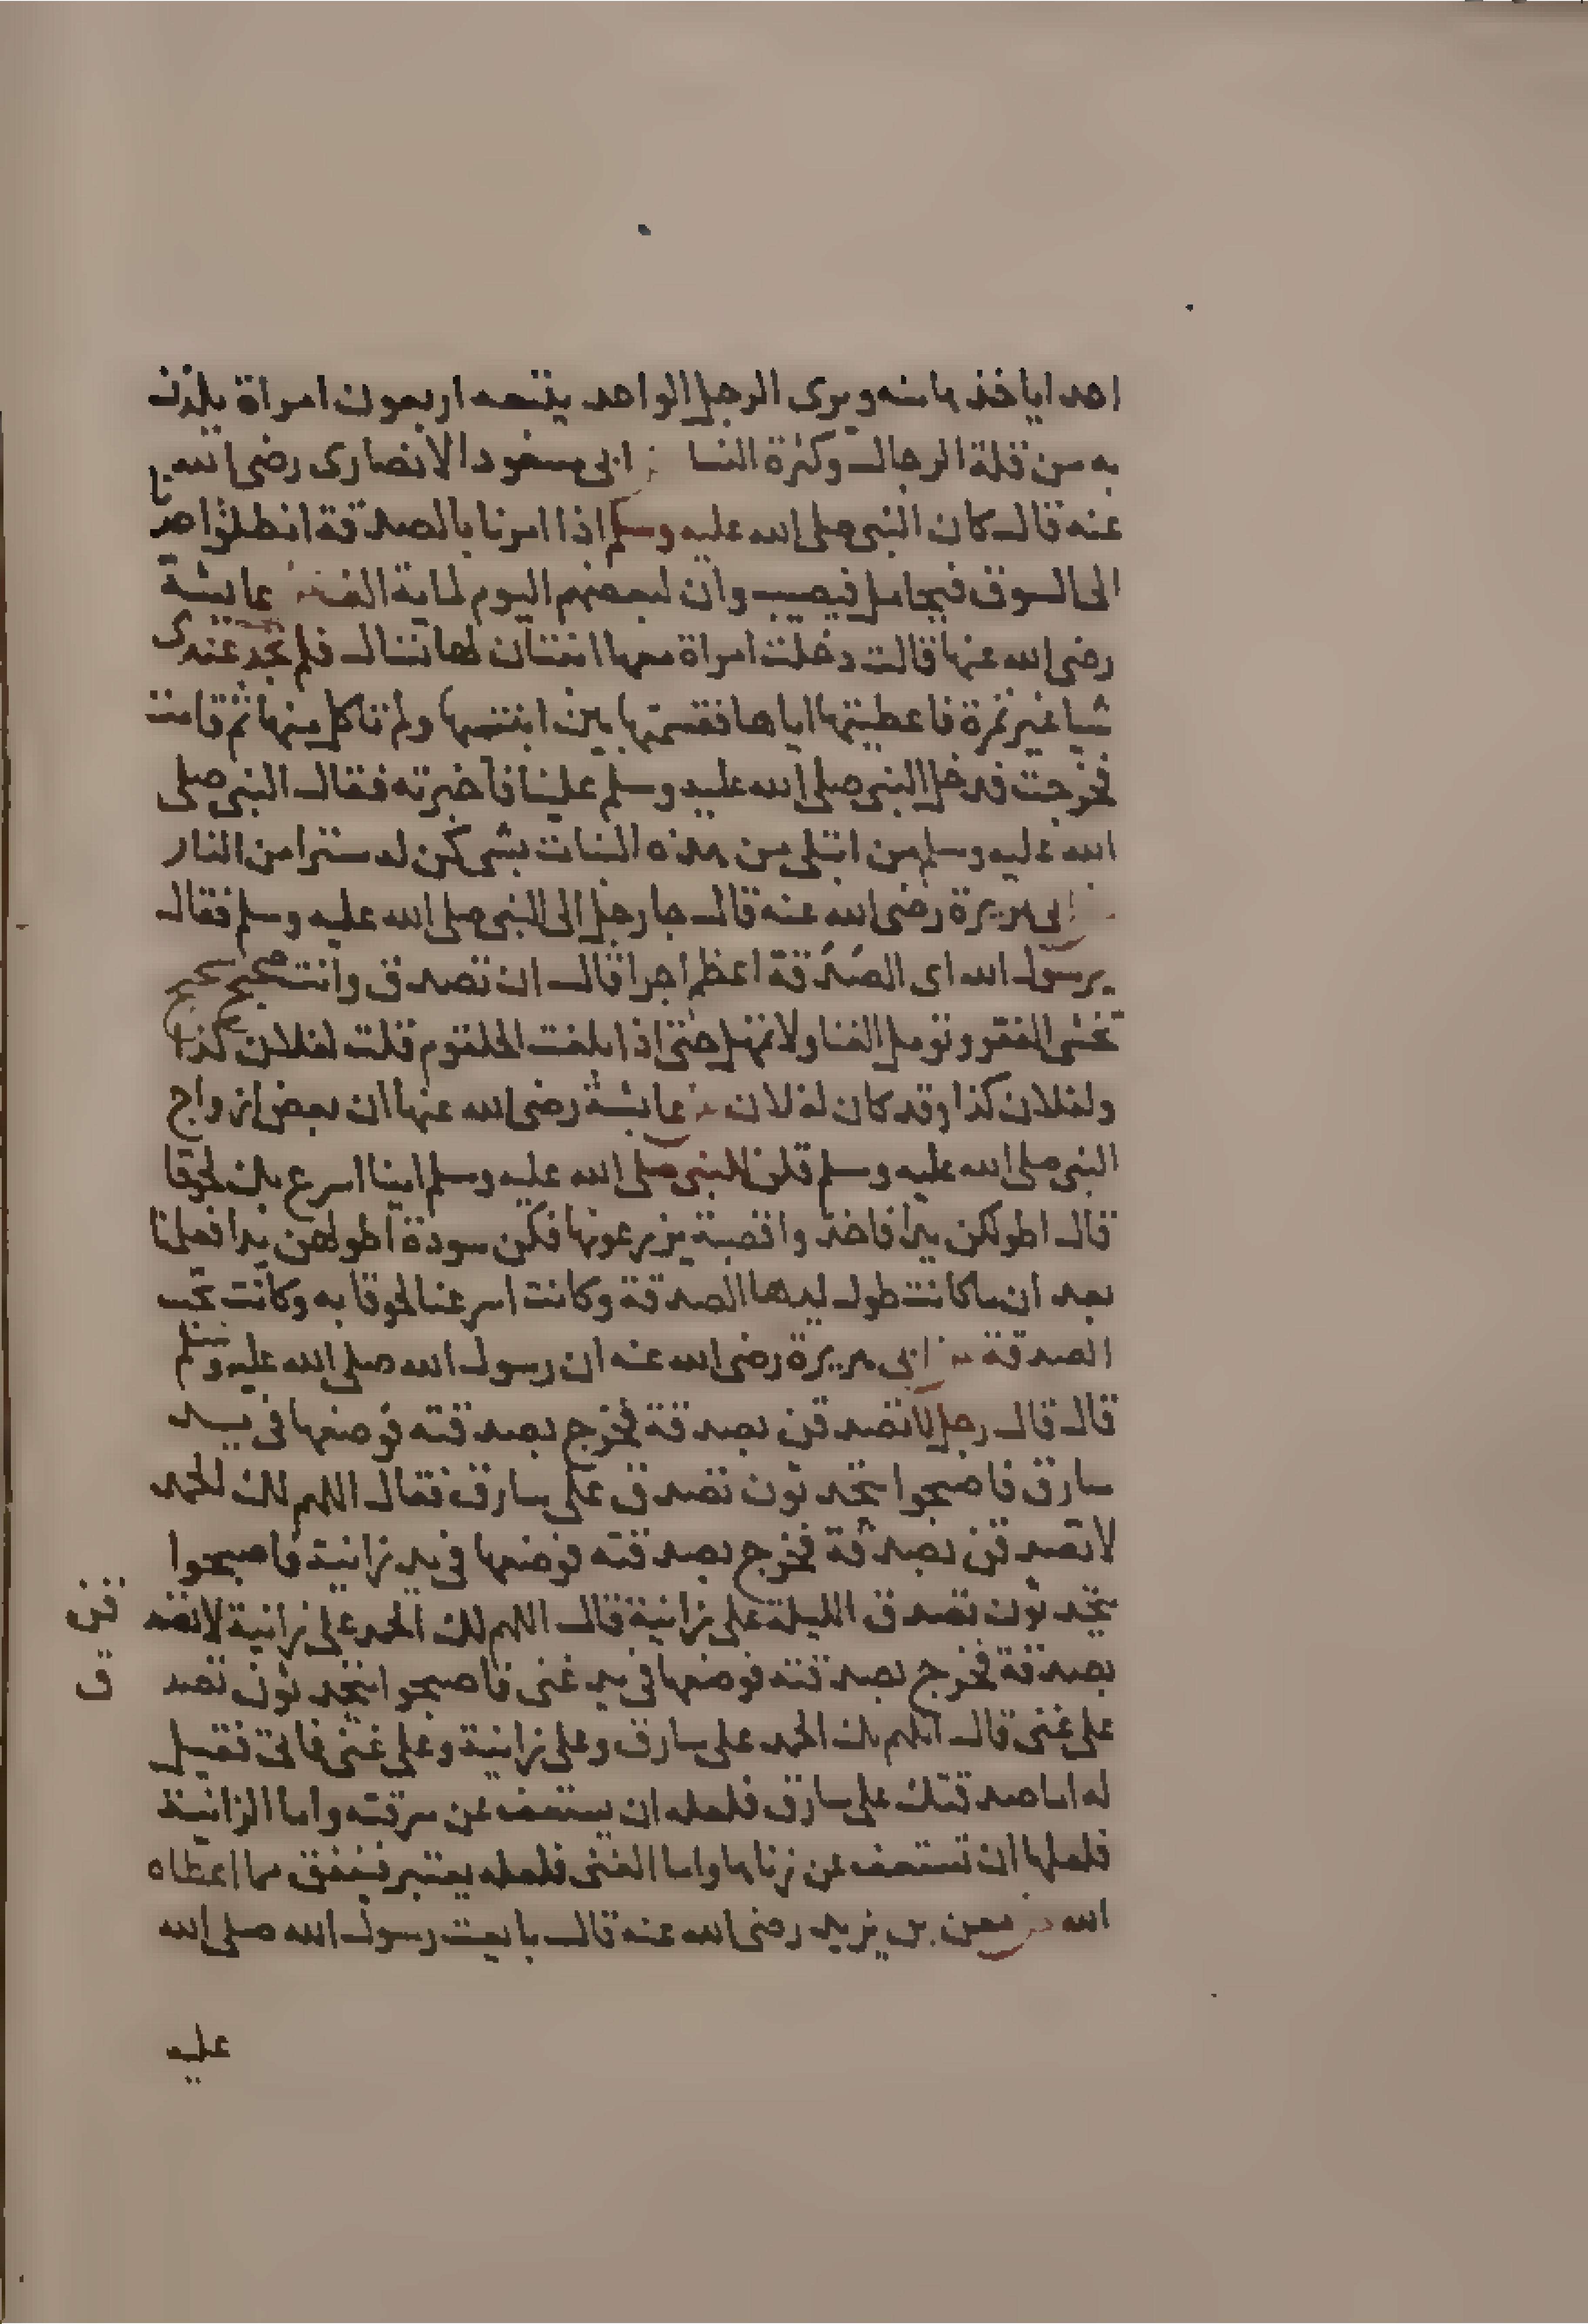 احدا ياخذها منه ويرى الرجل الواحد يتبعه اربعون امراة يلذن
به من قلة الرجال وكثرة النسا ابي مسعود الانصارى رضى الله
عنه قال كان النبي صلى الله عليه وسلم اذا امرنا بالصدقة انطلق احدنا
الى السوق فيحامل فيصيب وان لبعضهم اليوم لماية الف عايشة
رضى الله عنها قالت دخلت امراة معها ابنتان لها تسال فلم تجد عندى
شيا غير تمرة فاعطيتها اياها فقسمتها بين ابنتيها ولم تاكل منها ثم قامت
فخرجت فدخل النبي صلى الله عليه وسلم علينا فاخبرته فقال النبي صلى
الله عليه وسلم من ابتلى من هذه البنات بشى كن له سترا من النار
ابى هريرة رضى الله عنه قال جا رجل الى النبي صلى الله عليه وسلم فقال
يرسول الله اى الصدقة اعظم اجرا قال ان تصدق وانت صحيح شحيح
تخشى الفقر وتومل الغنا ولا تمهل حتى اذا بلغت الحلقوم قلت لفلان كذا
ولفلان كذا وقد كان لفلان عايشة رضى الله عنها ان بعض ازواج
النبي صلى الله عليه وسلم قلن للنبي صلى الله عليه وسلم اينا اسرع بك لحوقا
قال اطولكن يدا فاخذوا قصبة يزرعونها فكن سودة اطولهن يدا فعلمنا
بعد انما كانت طول يدها الصدقة وكانت اسرعنا لحوقا به وكانت تحب
الصدقة ابى هريرة رضى الله عنه ان رسول الله صلى الله عليه وسلم
قال قال رجل لاتصدقن بصدقة فخرج بصدقته فوضعها في يد
سارق فاصبحوا يتحدثون تصدق على سارق فقال اللهم لك الحمد
لاتصدقن بصدقة فخرج بصدقته فوضعها في يد زانية فاصبحوا
يتحدثون تصدق الليلة على زانية قال اللهم لك الحمد على زانية لاتصد قن
بصدقة فخرج بصدقته فوضعها في يد غنى فاصبحوا يتحدثون تصد ق
على غنى قال اللهم لك الحمد على سارق وعلى زانية وعلى غنى فاتى فقيل
له اما صدقتك على سارق فلعله ان يستعف عن سرقته واما الزانية
فلعلها ان تستعف عن زناها واما الغنى فلعله يعتبر فينفق مما اعطاه
الله معن بن يزيد رضى الله عنه قال بايعت رسول الله صلى الله
عليه